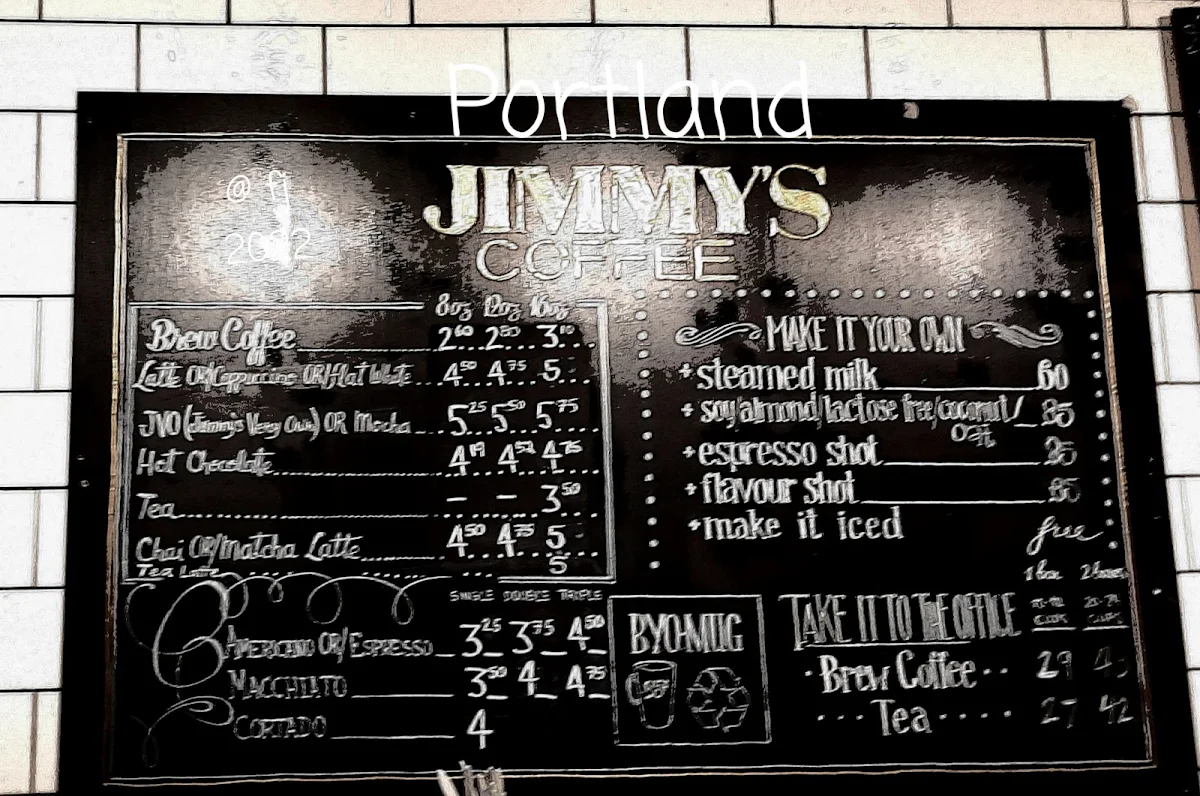 Portland
@ fj
2022
JIMMY'S
COFFEE
8oz 12oz 16oz
Brew Coffee 2.60 2.80 3.10
Latte OR/Cappuccino OR/Flat White 4.50 4.75 5
JVO (Jimmy's Very Own) OR Mocha 5.25 5.50 5.75
Hot Chocolate 4.19 4.52 4.75
Tea - - 3.50
Chai OR/Matcha Latte 4.50 4.75 5
Tea Latte 5
SINGLE DOUBLE TRIPLE
AMERICANO OR/ESPRESSO 3.25 3.75 4.50
MACCHIATO 3.50 4 4.75
CORTADO 4
MAKE IT YOUR OWN
+ steamed milk 60
+ soy/almond/lactose free/coconut/ 85
oat
+ espresso shot
+ flavour shot 85
+ make it iced free
BYO-MUG
TAKE IT TO THE OFFICE
1 box 2 boxes
CUPS CUPS
Brew Coffee 29
Tea 27 42